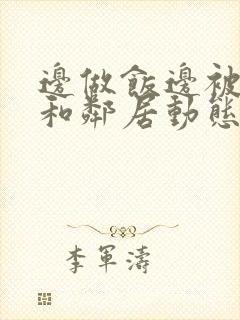 邊做飯邊被
和鄰居動態
李軍濤